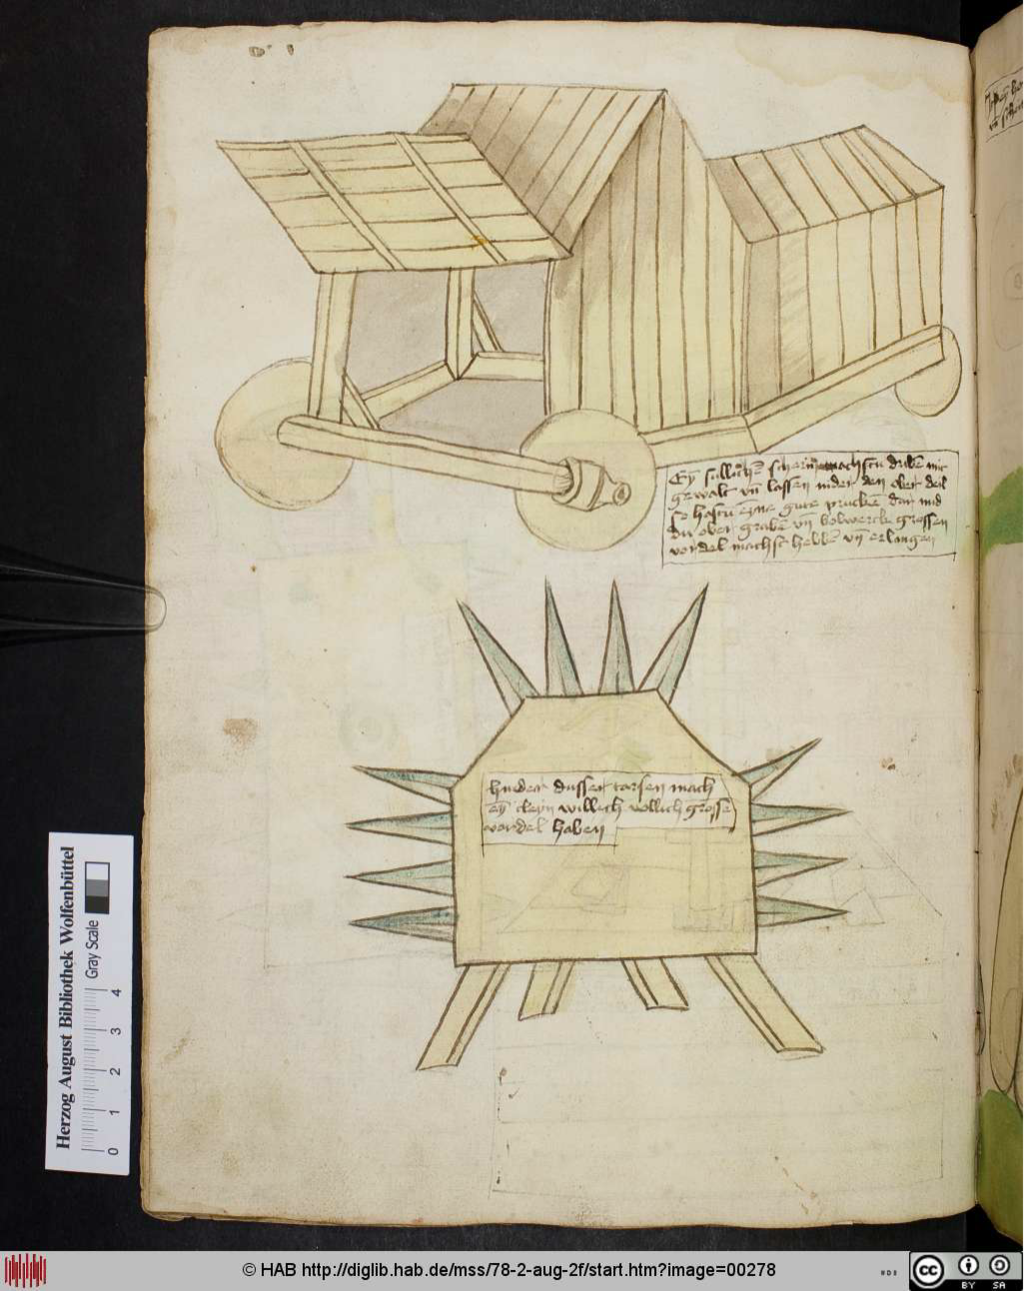 Ey sullichē scherm machstu dribē mit
gewalt vn̄ lassen nider den ober deil
so hastu eyne gute pruckē dar mid
du ober grabē vn̄ bolwerck grossen
vordel machst hebbē vn̄ erlangen
hinder dusser tarsen mach
eȳ cleyn willich vollich grosse
vordel haben
Herzog August Bibliothek Wolfenbüttel
Gray Scale
0 1 2 3 4
© HAB http://diglib.hab.de/mss/78-2-aug-2f/start.htm?image=00278
cc BY SA